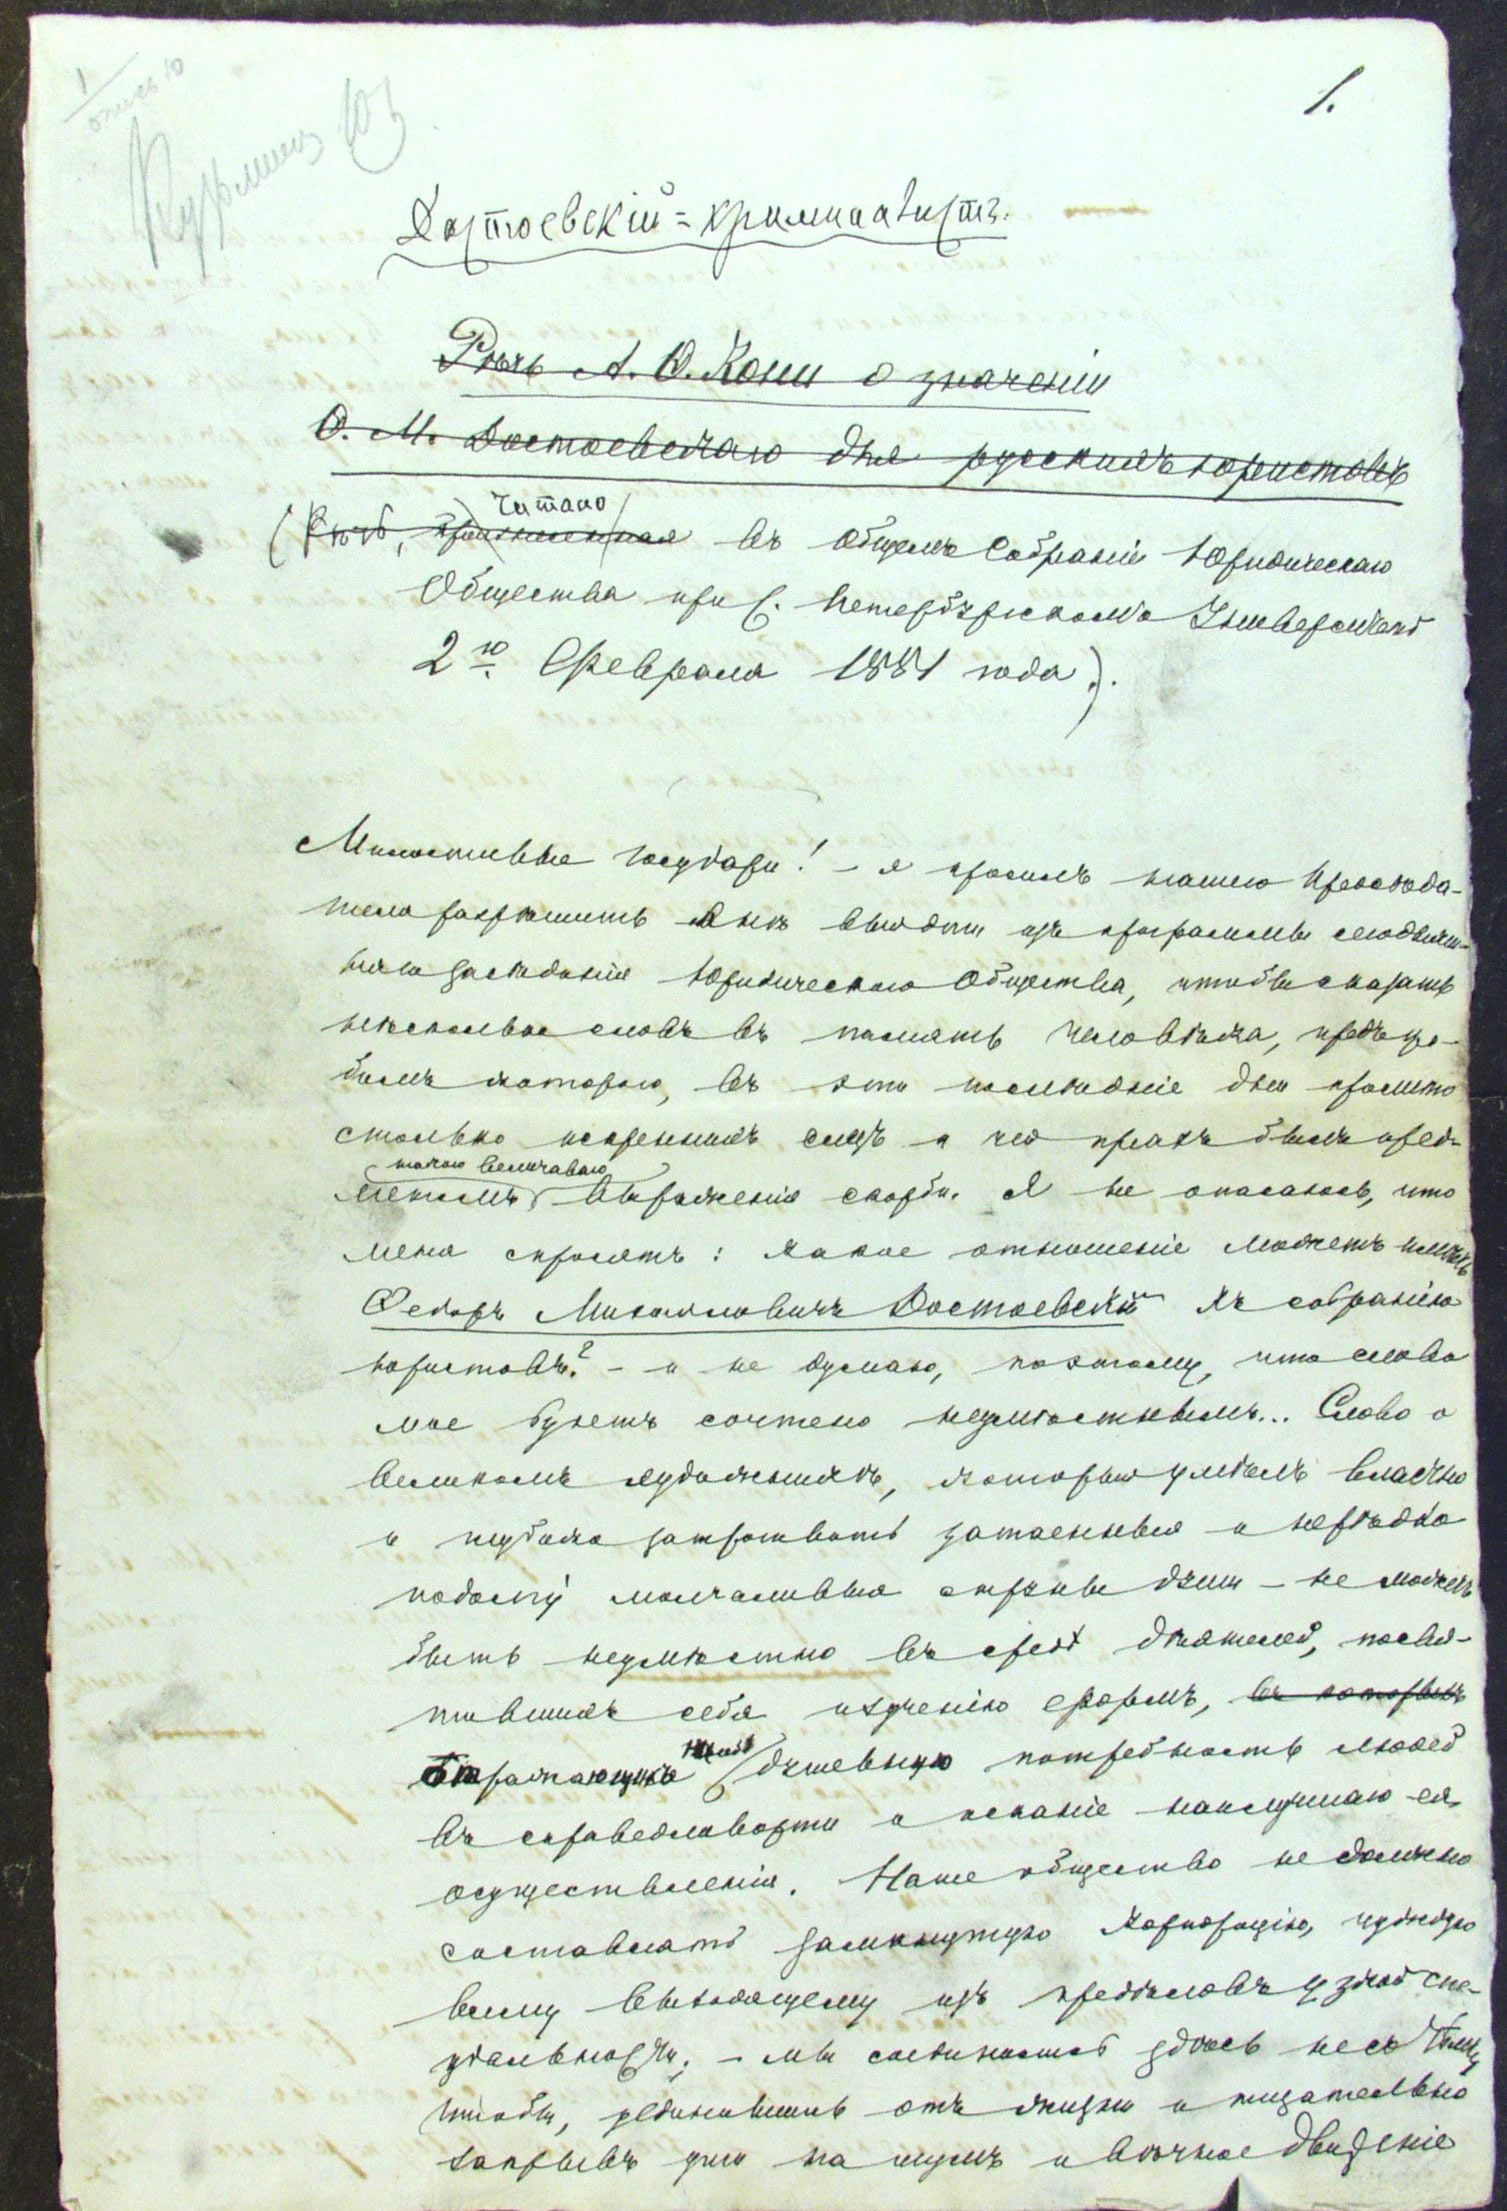 1.
Достоевскій = криминалистъ.
Рѣчь А. Ѳ. Кони о значеніи
Ѳ. М. Достоевскаго для русскихъ юристовъ
Читано
(Рѣчь, произнесенная въ Общемъ Собраніи Юридическаго
Общества при С. Петербургскомъ Университетѣ
2го Февраля 1881 года).
Милостивые Государи! – я просилъ нашего Предсѣда-
теля разрѣшить мнѣ выйдти изъ программы сегодняш-
няго засѣданія Юридическаго Общества, чтобы сказать
нѣсколько словъ въ память человѣка, предъ гро-
бомъ котораго, въ эти послѣдніе дни пролито
столько искреннихъ слезъ и чей прахъ былъ пред-
такою величаваго
метомъ выраженія скорби. Я не опасаюсь, что
меня спросятъ: какое отношеніе можетъ имѣть
Ѳедоръ Михайловичъ Достоевскій къ собранію
юристовъ? – и не думаю, поэтому, что слово
мое будетъ сочтено неумѣстнымъ... Слово о
великомъ художникѣ, который умѣлъ властно
и глубоко затрогивать затаенныя и нерѣдко
подолгу молчаливыя струны души – не можетъ
быть неумѣстно въ средѣ дѣятелей, посвя-
тившихъ себя изученію формъ, въ которыхъ
отражающихъ душевную потребность людей
въ справедливости и исканіе наилучшаго ея
осуществленія. Наше общество не должно
составлять замкнутую корпорацію, чуждую
всему выходящему изъ предѣловъ узкой спе-
ціальности; – мы соединились здѣсь не съ тѣмъ,
чтобы, уединившись отъ жизни и тщательно
закрывъ уши на шумъ и вѣчное движеніе